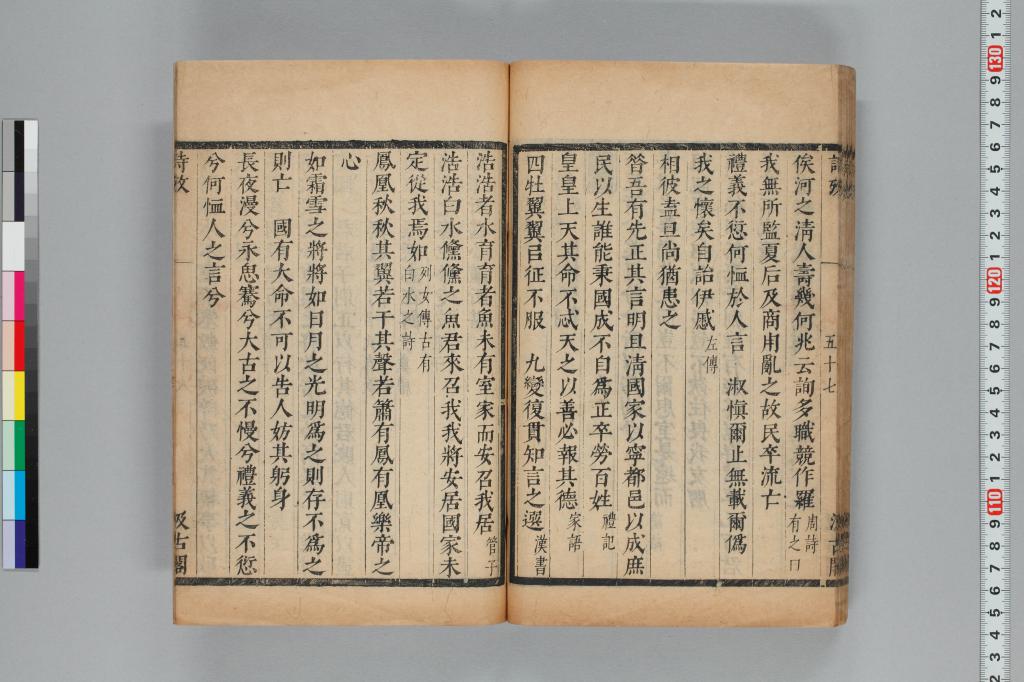 俟河之淸人壽幾何兆云詢多職競作羅 周詩有之曰
我無所監夏后及商用亂之故民卒流亡
禮義不愆何恤於人言　淑愼爾止無載爾僞
我之懷矣自詒伊慼 左傳
相彼盍旦尚猶患之
昔吾有先正其言明且淸國家以寧都邑以成庶
民以生誰能秉國成不自爲正卒勞百姓 禮記
皇皇上天其命不忒天之以善必報其德 家語
四牡翼翼㠯征不服　九變復貫知言之選 漢書
浩浩者水育育者魚未有室家而安召我居 管子
浩浩白水儵儵之魚君來召我我將安居國家未
定從我焉如 列女傳古有白水之詩
鳳凰秋秋其翼若干其聲若簫有鳳有凰樂帝之
心
如霜雪之將將如日月之光明爲之則存不爲之
則亡　國有大命不可以告人妨其躬身
長夜漫兮永思騫兮大古之不慢兮禮義之不愆
兮何恤人之言兮
詩攷
汲古閣
五十七